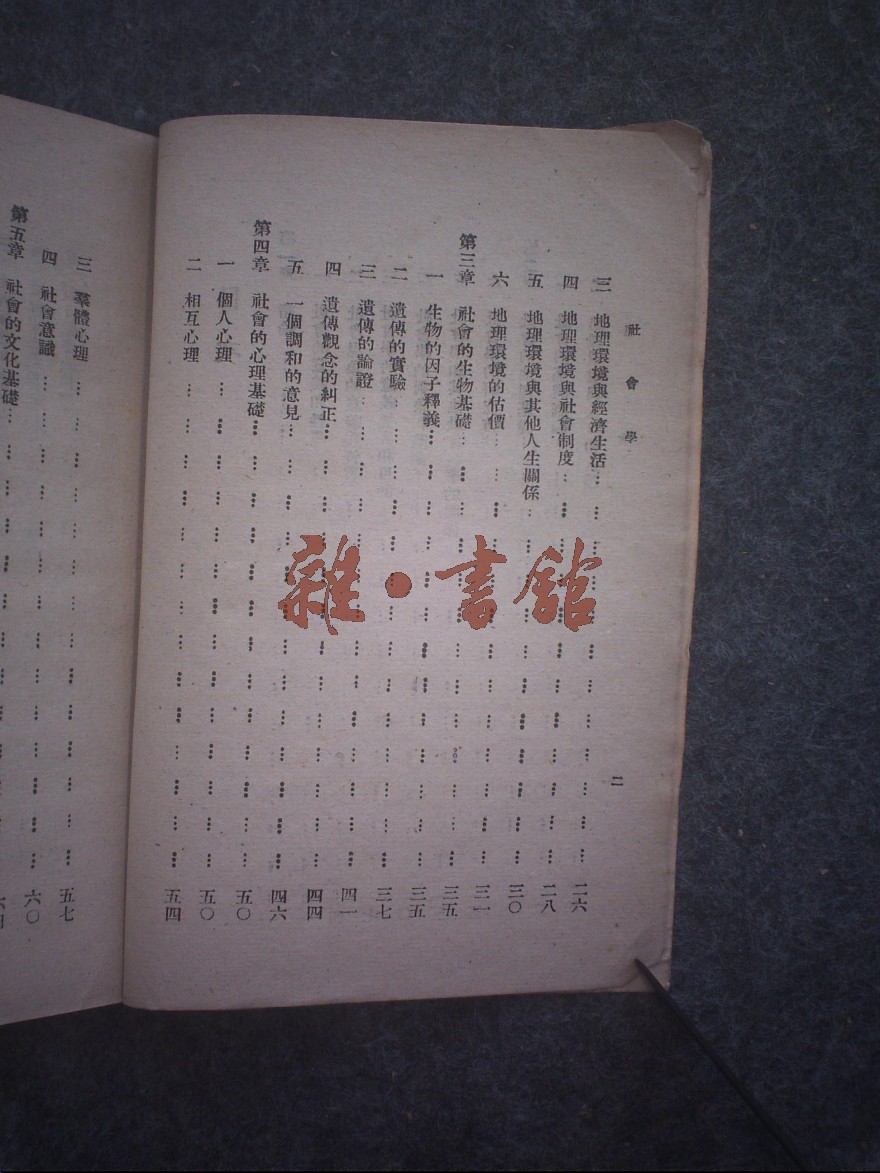 社會學
二
三 地理環境與經濟生活………二六
四 地理環境與社會制度………二八
五 地理環境與其他人生關係………三〇
六 地理環境的估價………三一
第三章 社會的生物基礎………三五
一 生物的因子釋義………三五
二 遺傳的實驗………三七
三 遺傳的論證………四一
四 遺傳觀念的糾正………四四
五 一個調和的意見………四六
第四章 社會的心理基礎………五〇
一 個人心理………五〇
二 相互心理………五四
三 羣體心理………五七
四 社會意識………六〇
第五章 社會的文化基礎………六
雜·書館